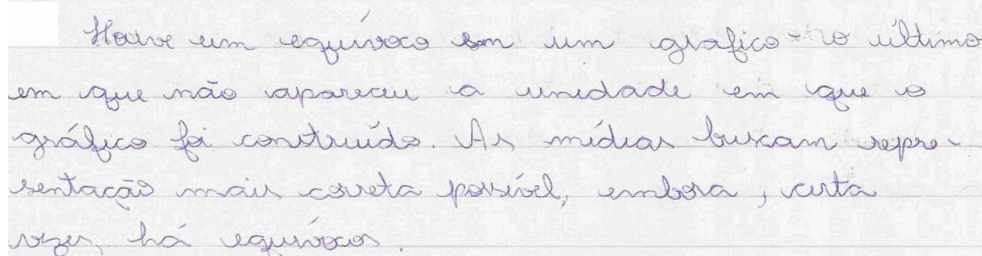 Houve um equívoco em um gráfico - no último
em que não apareceu a unidade em que o
gráfico foi construído. As mídias buscam repre-
sentação mais correta possível, embora, certa
vezes, há equívocos.